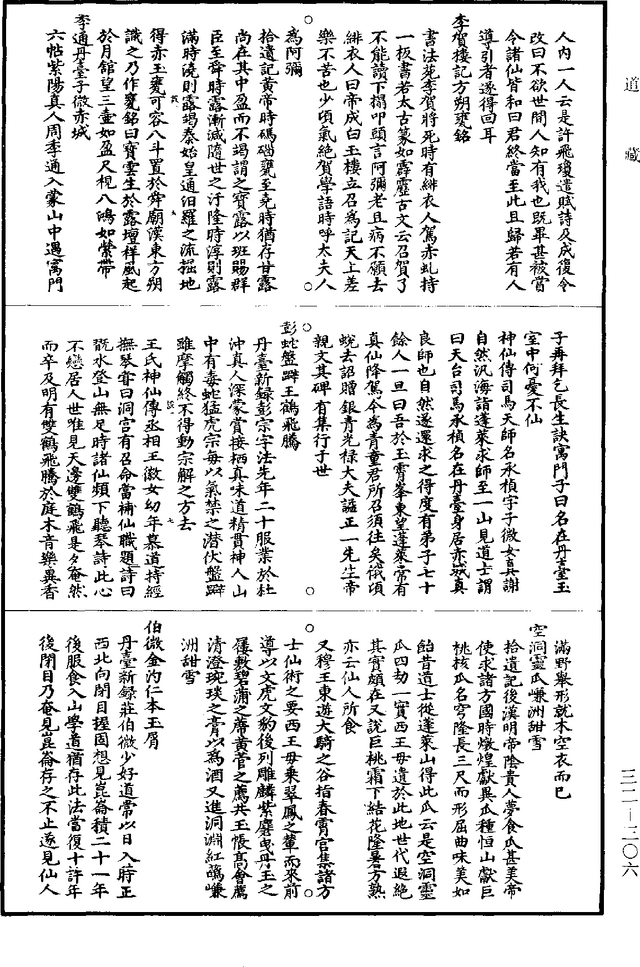 道藏
人內一人云是許飛瓊遣賦詩及成復令
改曰不欲世間人知有我也既畢甚被賞
今諸仙皆和曰君終當至此且歸若有人
導引者遂得回耳
李賀樓記方朔甕銘
書法苑李賀將死時有緋衣人駕赤虬持
一板書若太古篆如霹靂古文云召賀了
不能讀下榻叩頭言阿彌老且病不願去
緋衣人曰帝成白玉樓立召為記天上差
樂不苦也少頃氣絕賀學語時呼太夫人
為阿彌
拾遺記黃帝時碼碯甕至堯時猶存甘露
尚在其中盈而不竭謂之寶露以班賜群
臣至舜時露漸減隨世之汙隆時淳則露
滿時澆則露竭秦始皇通汨羅之流掘地
得赤玉甕可容八斗置於舜廟漢東方朔
識之乃作甕銘曰寶雲生於露壇祥風起
於月舘望三壺如盈尺視八鴻如縈帶
李通丹臺子微赤城
六帖紫陽真人周季通入蒙山中遇寓門
子再拜乞長生訣寓門子曰名在丹臺玉
室中何憂不仙
神仙傳司馬天師名承楨字子微女真謝
自然汎海詣蓬萊求師至一山見道士謂
曰天台司馬承楨名在丹臺身居赤城真
良師也自然遂還求之得度有弟子七十
餘人一旦曰吾於玉霄峯東望蓬萊常有
真仙降駕今為青童君所召須往矣俄頃
蛻去詔贈銀青光祿大夫謚正一先生帝
親文其碑有集行于世
彭蛇盤辟王鶴飛騰
丹臺新錄彭宗字法先年二十服業於杜
沖真人深蒙賞接栖真味道精貫神人山
中有毒蛇猛虎宗每以氣禁之潛伏盤辟
雖摩觸終不得動宗解之方去
王氏神仙傳丞相王徽女幼年慕道持經
撫琴甞曰洞宮有召命當補仙職題詩曰
翫水登山無足時諸仙頻下聽琴詩此心
不戀居人世唯見天邊雙鶴飛是夕奄然
而卒及明有雙鶴飛騰於庭木音樂異香
滿野舉形就木空衣而已
空洞靈瓜嵰洲甜雪
拾遺記後漢明帝陰貴人夢食瓜甚美帝
使求諸方國時燉煌獻異瓜種恒山獻巨
桃核瓜名穹隆長三尺而形屈曲味美如
飴昔道士從蓬萊山得此瓜云是空洞靈
瓜四劫一實西王母遺於此地世代遐絕
其實頗在又說巨桃霜下結花隆暑方熟
亦云仙人所食
又穆王東遊大騎之谷指春霄宮集諸方
士仙術之要西王母乘翠鳳之輦而來前
導以文虎文豹後列雕麟紫麏曳丹玉之
屨敷碧蒲之蓆黃莞之薦共玉帳高會薦
清澄琬琰之膏以為酒又進洞淵紅蘤嵰
洲甜雪
伯微金汋仁本玉屑
丹臺新錄莊伯微少好道常以日入時正
西北向閉目握固想見崑崙積二十一年
後服食入山學道猶存此法當復十許年
後閉目乃奄見崑崙存之不止遂見仙人
三二—三〇六